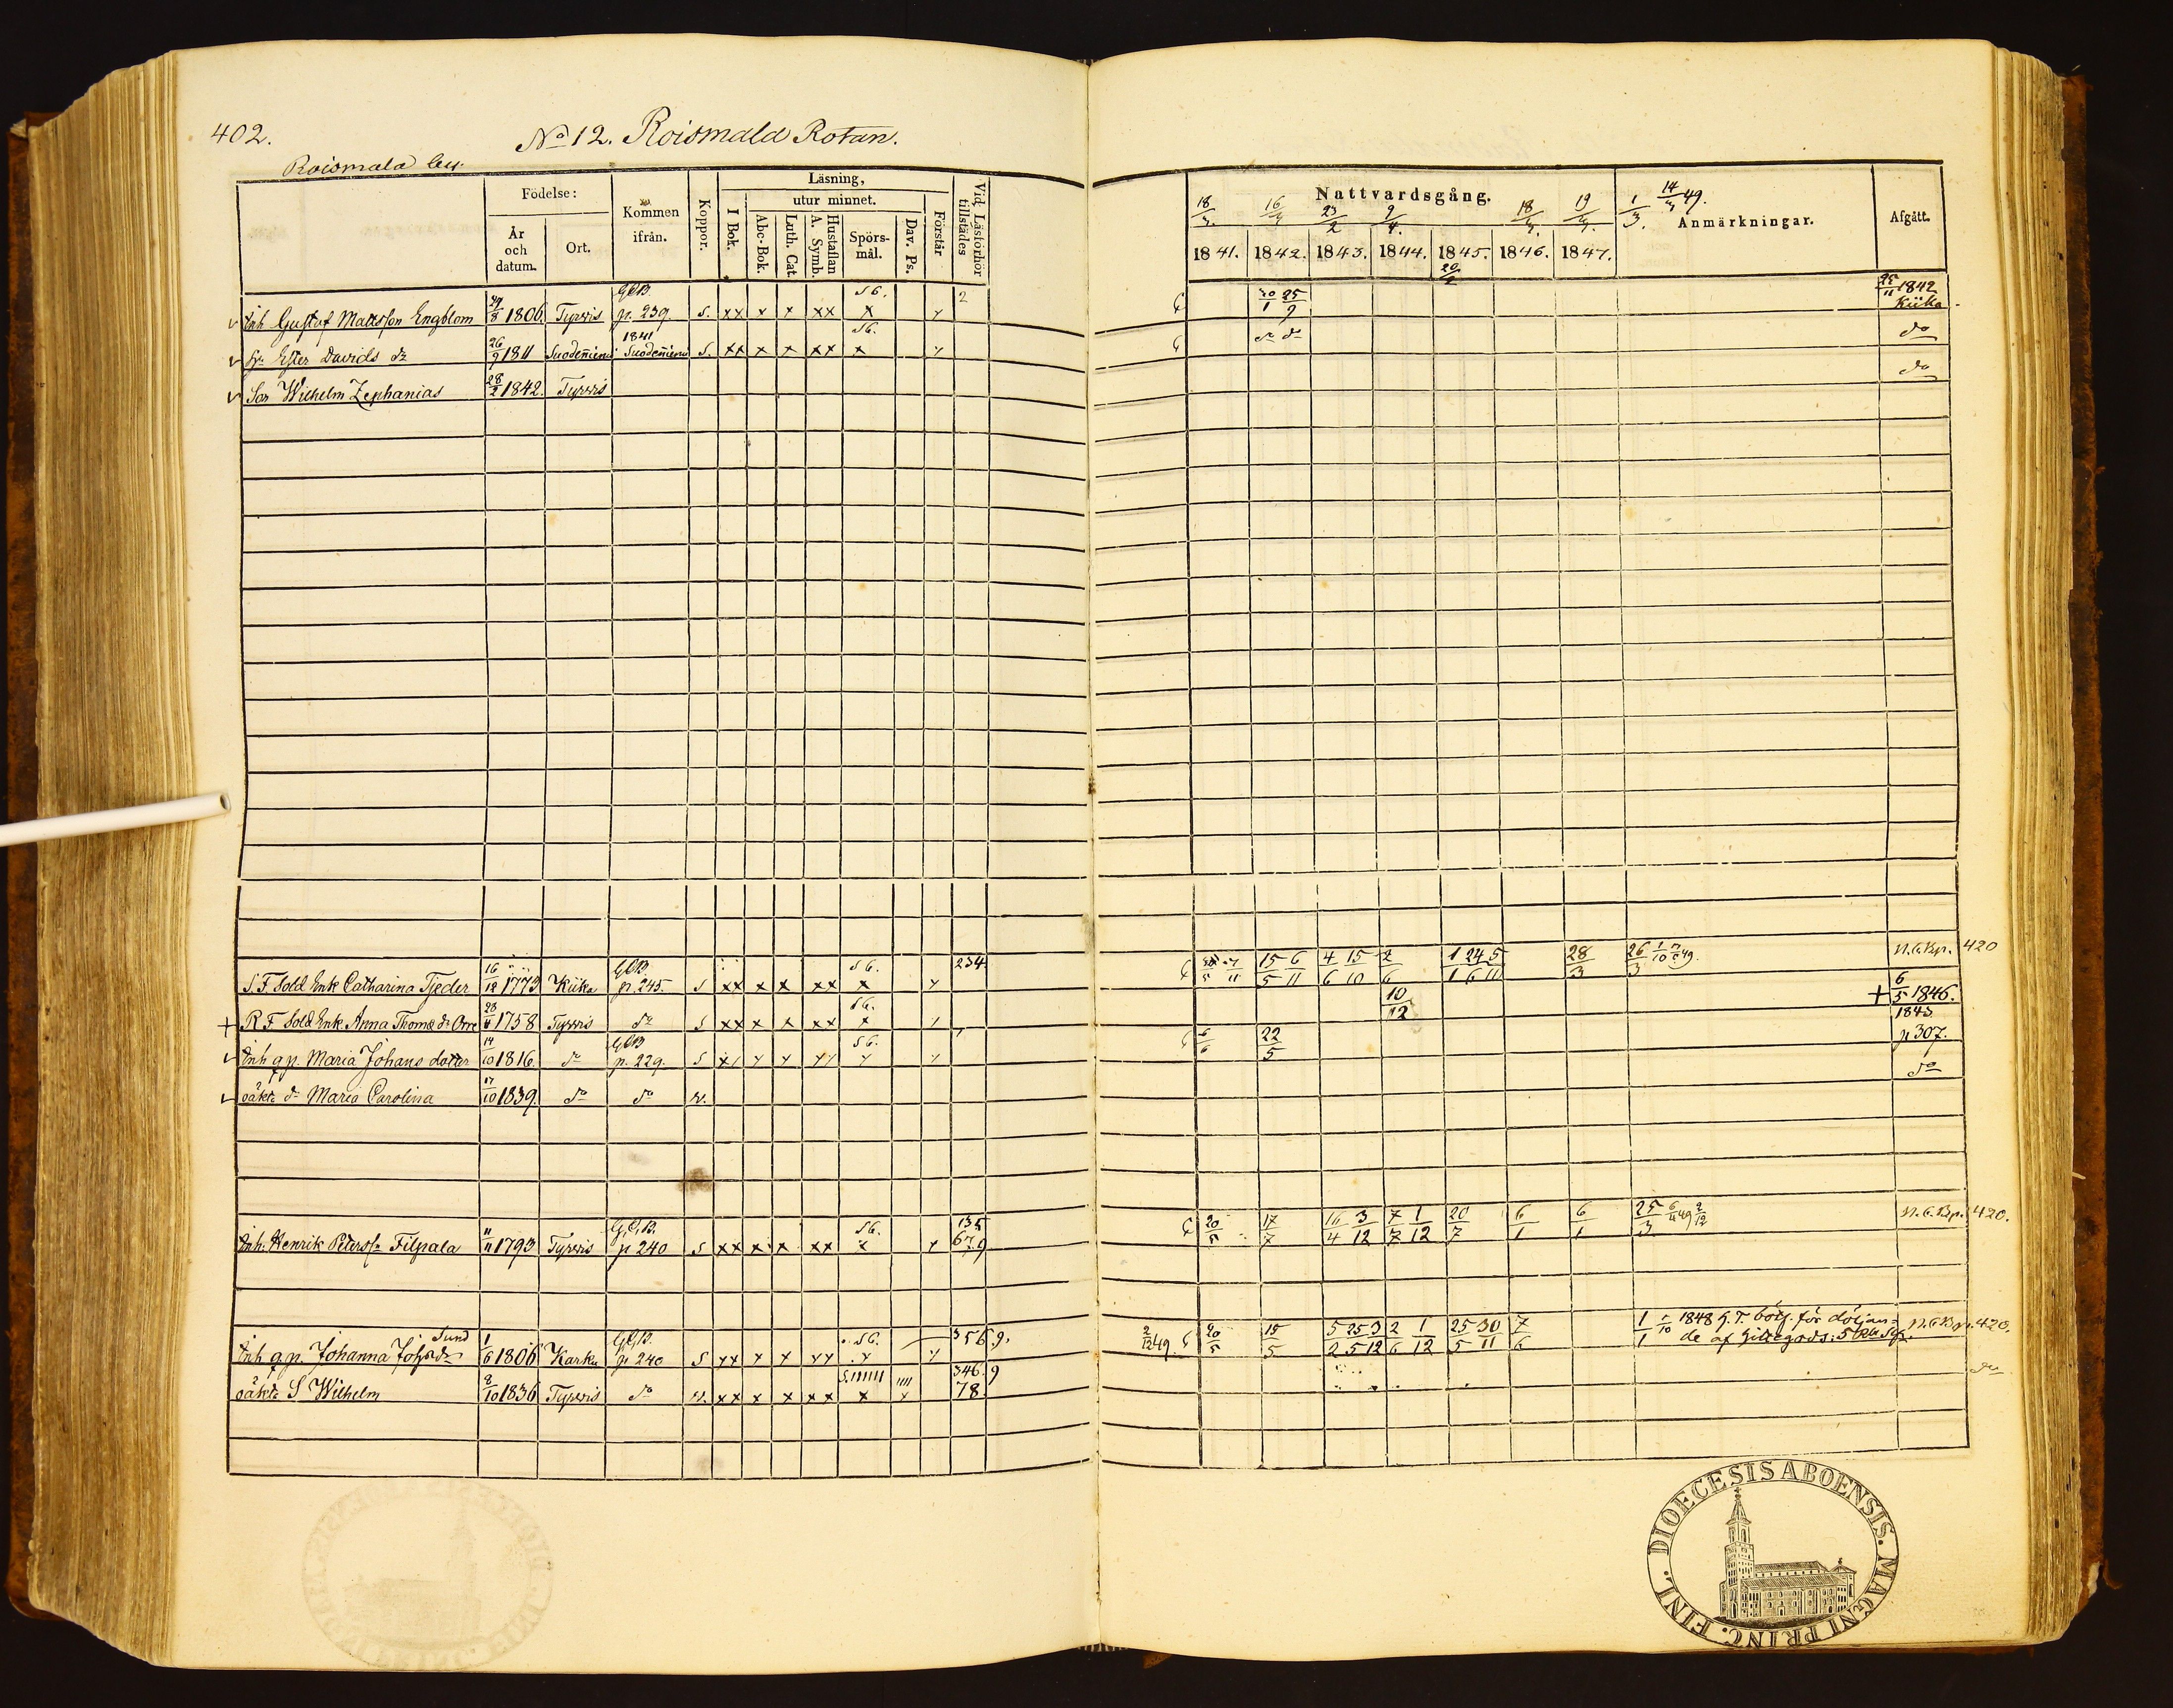 402.
No 12. Roismala Rotan.
Roismala by.
Födelse: År och datum. Ort.
Kommen ifrån.
Koppor.
Läsning, I Bok. utur minnet. Abc-Bok. Luth. Cat. Hustaflan A. Symb. Spörsmål. Dav. Ps. Förstår
Vid Läsförhör tillstädes
Nattvardsgång.
18/3. 16/3 23/2 9/4. 18/3. 19/3. 1/3. 14/3 49.
1841. 1842. 1843. 1844. 1845. 1846. 1847.
Anmärkningar.
Afgått.
Inh Gustaf Mattsson Engblom 29/8 1806 Tyrvis G.C.B. p. 239 S. xx x x xx S6. x x 2 20/1 25/9 25/11 1842 Kiika
Hu Ester Davids dr 26/9 1811 Suodeniemi 1841 Suodeniemi S. xx x x xx S6. x x do do do
Son Wilhelm Zephanias 28/2 1842. Tyrvis do
S. F. Sold Enk Catharina Tjeder 16/12 1773 Kiika G.C.B. p. 245. S xx x x xx S6. x x 234 15/5 6/11 4/6 15/10 2/6 1/1 24/6 5/11 28/3 26/3 N.C.B.p. 420
+ R. F Sold Enk Anna Thomæ dr Orre 1758 Tyrvis do S xx x x xx S6. x x 10/12 + 6/5 1846.
Inh q.p. Maria Johans dotter 14/10 1816. do G.C.B p. 229. S S6. 6/6 22/5 1843 p 307.
oäkta dr Maria Carolina 17/10 1839. do do v. do
Inh. Henrik Peterss. Filpala 11/11 1793 Tyrvis G.C.B. p 240 S xx x x xx S6. x x 135 679 20/5 17/7 16/4 3/12 7/7 1/12 20/7 6/1 6/1 25/3 6/4 49 2/12 N.C.B.p. 420.
Inh q.p. Johanna Johsdr Sund 1/6 1806 Karku G.C.B. p 240 S S6. 3569. 2/12 49 20/5 15/5 5/2 25/5 3/12 2/6 1/12 25/5 30/11 7/6 1/1 1848 H.T. böt. för döljande af Giltegods: 5 Rbl Sr. N.C.B.p. 420.
oäkta S Wilhelm 8/10 1836 Tyrvis do v. xx x x xx x x 346.9 78 do
DIOECESIS ABOENSIS. MAGNI PRINC. FINL.